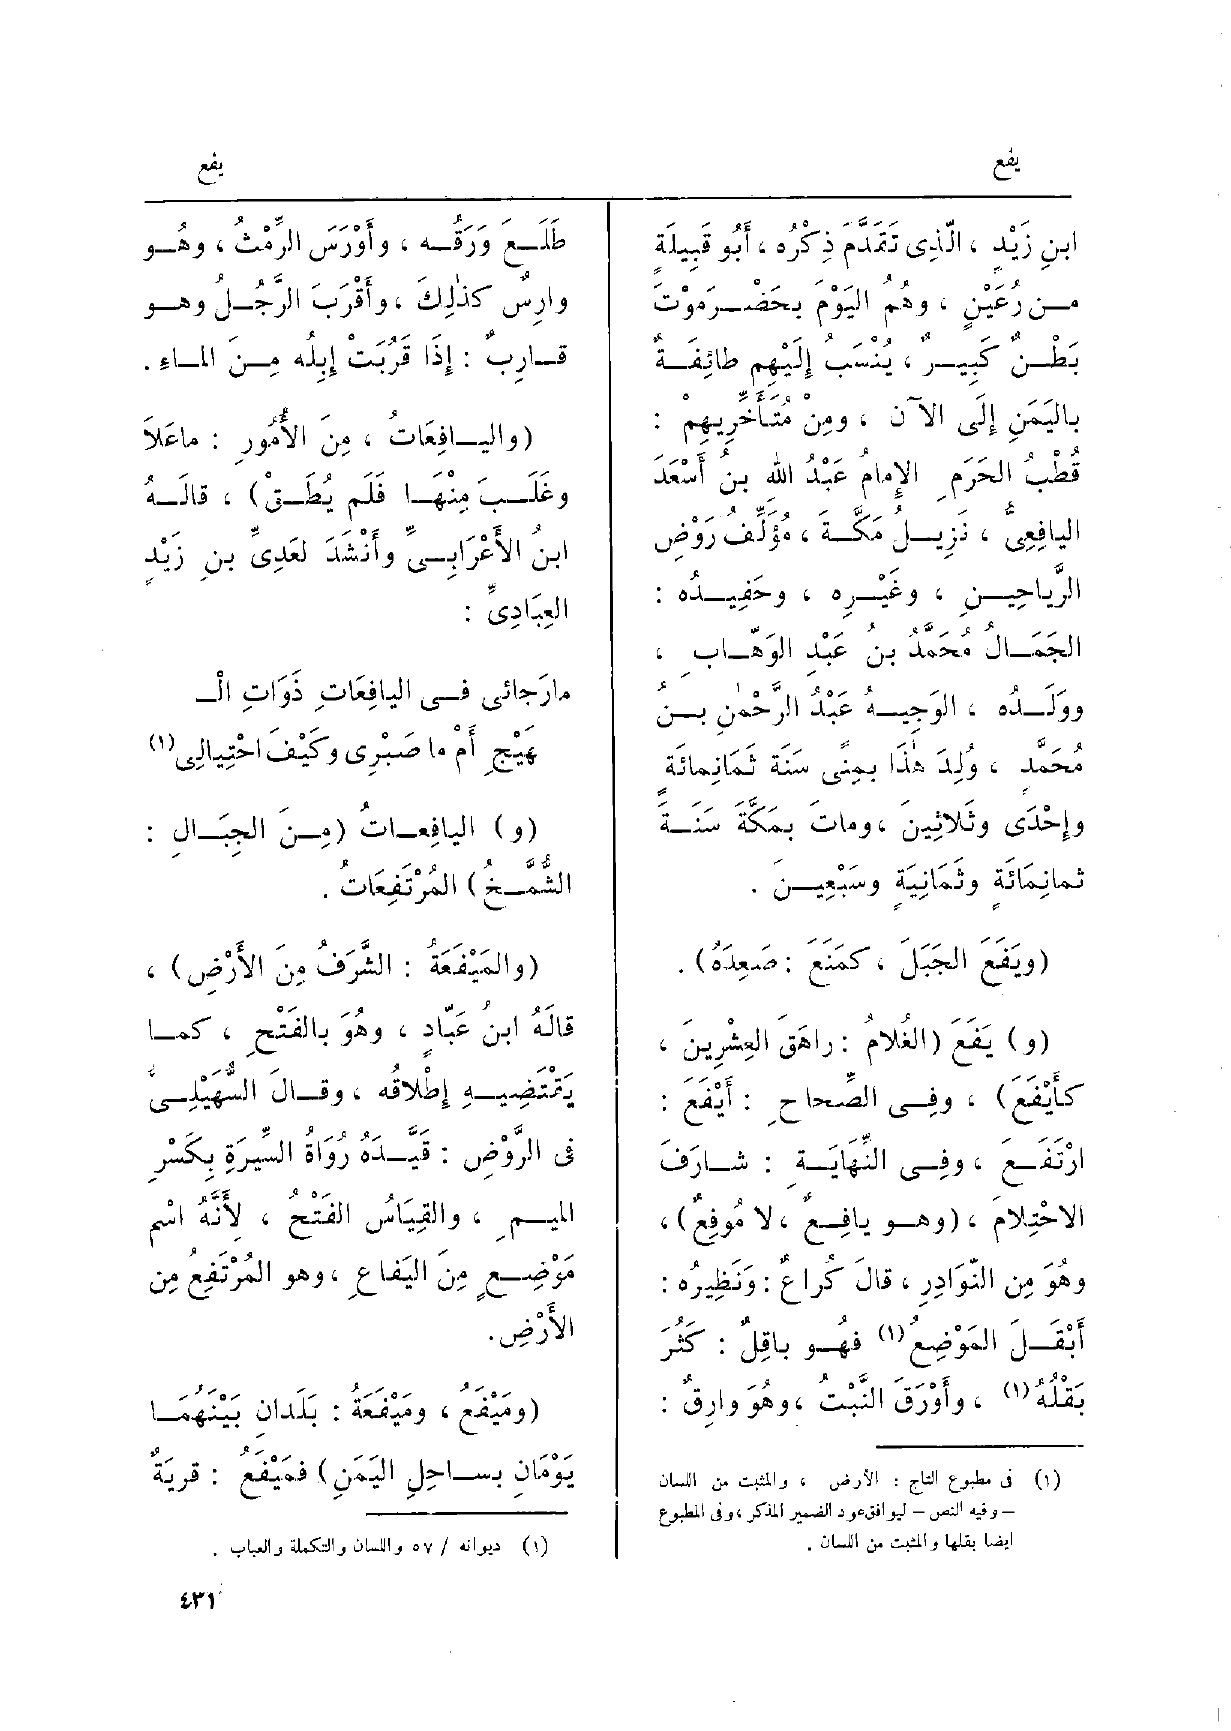 يفع
يفع
ابنِ زَيْدٍ ، الَّذِى تَقَدَّمَ ذِكْرُه ، أَبُو قَبِيلَةٍ
مـن رُعَيْنٍ ، وهُمُ اليَوْمَ بحَضْـرَمَوْتَ
بَطْـنٌ كَبِيـرٌ ، يُنْسَبُ إِلَيْهِم طائِفَـةٌ
بالْيَمَنِ إِلَى الآنَ ، ومِنْ مُتَـأَخِّرِيهِم :
قُطْبُ الحَرَمِ الإِمامُ عَبْدُ اللهِ بنُ أَسْعَدَ
اليافِعِىُّ ، نَزِيـلُ مَكَّـةَ ، مُؤَلِّفُ رَوْضِ
الرَّياحِيـنِ ، وغَيْـرِه ، وحَفِيـدُه :
الجَمَـالُ مُحَمَّدُ بنُ عَبْدِ الوَهّـابِ ،
ووَلَـدُه ، الوَجِيـهُ عَبْدُ الرَّحْمٰنِ بـنُ
مُحَمَّدٍ ، وُلِدَ هٰذَا بمِنًى سَنَة ثَمَانِمائَةٍ
وإِحْدَى وثَلاثِينَ ، وماتَ بمَكَّةَ سَنَـةَ
ثمانِمائَةٍ وثَمَانِيَةٍ وسَبْعِيـنَ .
(ويَفَعَ الجَبَلَ ، كمَنَعَ : صَعِدَهُ) .
(و) يَفَعَ (الغُلامُ : راهَقَ العِشْرِينَ ،
كأَيْفَعَ) ، وفِـى الصِّحاحِ : أَيْفَعَ :
ارْتَفَـعَ ، وفِـى النِّهَايَـةِ : شـارَفَ
الاحْتِلامَ ، (وهـو يافِـعٌ ، لا مُوفِعٌ) ،
وهُوَ مِن النَّوَادِرِ ، قالَ كُراعٌ : ونَظِيرُه :
أَبْقَـلَ المَوْضِعُ(١) فهُـو باقِلٌ : كَثُرَ
بَقْلُهُ(١) ، وأَوْرَقَ النَّبْتُ ، وهُوَ وارِقٌ :
(١) فى مطبوع التاج : الأرض ، والمثبت من اللسان
– وفيه النص – ليوافق عود الضمير المذكر ، وفى المطبوع
ايضا بقلها والمثبت من اللسان .
طَلَـعَ وَرَقُـه ، وأَوْرَسَ الرِّمْثُ ، وهُـو
وارِسٌ كذٰلِكَ ، وأَقْرَبَ الرَّجُـلُ وهـو
قـارِبٌ : إِذَا قَرُبَت إِبِلُه مِـنَ المـاءِ .
(واليـافِعَاتُ ، مِنَ الأُمُورِ : ماعَلاَ
وغَلَـبَ مِنْهَـا فَلَم يُطَـقْ) ، قالَـهُ
ابنُ الأَعْرَابِـىِّ وأَنْشَدَ لعَدِىِّ بنِ زَيْدٍ
العِبَادِىِّ :
مارَجائى فـى اليافِعَاتِ ذَوَاتِ الْـ
هَيْجِ أَمْ ما صَبْرِى وكَيْفَ احْتِيالِى(١)
(و) اليافِعـاتُ (مِـنَ الجِبَـالِ :
الشُّمَّـخُ) المُرْتَفِعَاتُ .
(والمَيْفَعَةُ : الشَّرَفُ مِنَ الأَرْضِ) ،
قالَهُ ابنُ عَبّادٍ ، وهُوَ بالفَتْحِ ، كمـا
يَقْتَضِيـهِ إِطْلاقُه ، وقـالَ السُّهَيْلِـىُّ
فى الرَّوْضِ : قَيَّـدَهُ رُوَاةُ السِّيرَةِ بكَسْرِ
الميـمِ ، والقِيَاسُ الفَتْحُ ، لأَنَّهُ اسْم
مَوْضِـعٍ مِنَ اليَفَاعِ ، وهو المُرْتَفِعُ مِن
الأَرْضِ .
(ومَيْفَعُ ، ومَيْفَعَةُ : بَلَدانِ بَيْنَهُمَـا
يَوْمَانِ بسـاحِلِ اليَمَنِ) فمَيْفَعُ : قريَةٌ
(١) ديوانه / ٥٧ واللسان والتكملة والعباب .
٤٣١